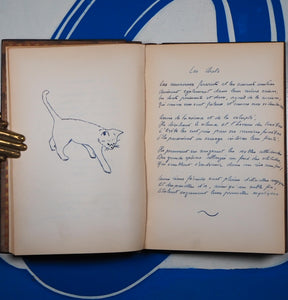 Les Chats
Les amoureux fervents et les savants austères
Aiment également dans leur mûre saison,
Les chats puissants et doux, orgueil de la maison
Qui comme eux sont frileux et comme eux sédentaires.
Amis de la science et de la volupté,
Ils cherchent le silence et l'horreur des ténèbres
L'Érèbe les eût pris pour ses coursiers funèbres
S'ils pouvaient au servage incliner leur fierté.
Ils prennent en songeant les nobles attitudes
Des grands sphinx allongés au fond des solitudes
Qui semblent s'endormir dans un rêve sans fin;
Leurs reins féconds sont pleins d'étincelles magiques
Et des parcelles d'or, ainsi qu'un sable fin,
Étoilent vaguement leurs prunelles mystiques